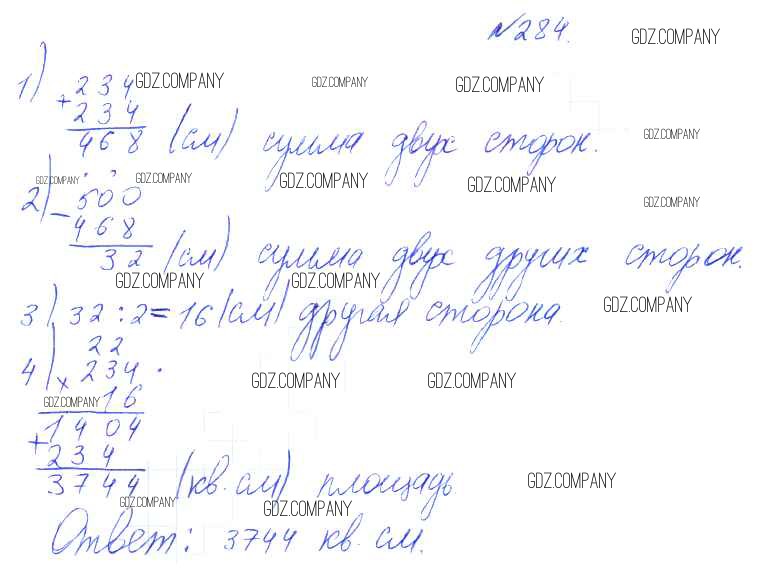 №284. GDZ.COMPANY
1) 234 GDZ.COMPANY GDZ.COMPANY GDZ.COMPANY
+ 234
468 (см) сумма двух сторон. GDZ.COMPANY
GDZ.COMPANY GDZ.COMPANY GDZ.COMPANY GDZ.COMPANY
2) − 500 GDZ.COMPANY
468
32 (см) сумма двух других сторон.
GDZ.COMPANY GDZ.COMPANY
3) 32 : 2 = 16 (см) другая сторона. GDZ.COMPANY
22
4) × 234 GDZ.COMPANY GDZ.COMPANY
GDZ.COMPANY 16
1404
+ 234
3744 (кв. см) площадь GDZ.COMPANY
GDZ.COMPANY GDZ.COMPANY
Ответ: 3744 кв. см.